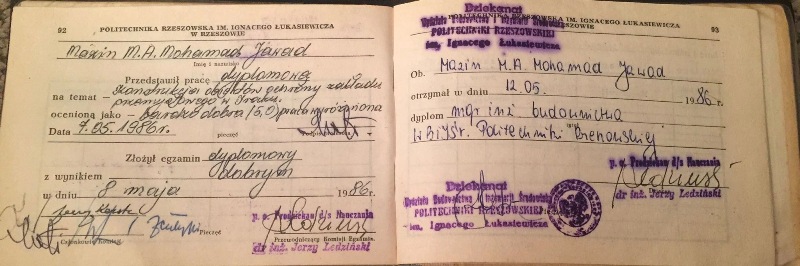 92 POLITECHNIKA RZESZOWSKA IM. IGNACEGO ŁUKASIEWICZA
W RZESZOWIE
Mazin M.A. Mohamad Jawad
Imię i nazwisko
Przedstawił pracę dyplomową
na temat - Konstrukcja obiektów ochrony zakładu
przemysłowego w Iraku.
ocenioną jako - bardzo dobra (5,0) praca wyróżniona
Data 7.05.1986r. pieczęć
Złożył egzamin dyplomowy
z wynikiem dobrym
w dniu 8 maja 1986r.
Pieczęć
p. o. Prodziekan d/s Nauczania
Członkowie Komisji
Przewodniczący Komisji Egzamin.
dr inż. Jerzy Ledziński
POLITECHNIKA RZESZOWSKA IM. IGNACEGO ŁUKASIEWICZA 93
W RZESZOWIE
Dziekanat
Wydziału Budownictwa i Inżynierii Środowiska
POLITECHNIKI RZESZOWSKIEJ
im. Ignacego Łukasiewicza
Ob. Mazin M.A. Mohamad Jawad
otrzymał w dniu 12.05. 1986r.
dyplom mgr inż budownictwa
WBiIŚr. Politechniki Rzeszowskiej
p. o. Prodziekan d/s Nauczania
dr inż. Jerzy Ledziński
Dziekanat
Wydziału Budownictwa i Inżynierii Środowiska
POLITECHNIKI RZESZOWSKIEJ
im. Ignacego Łukasiewicza